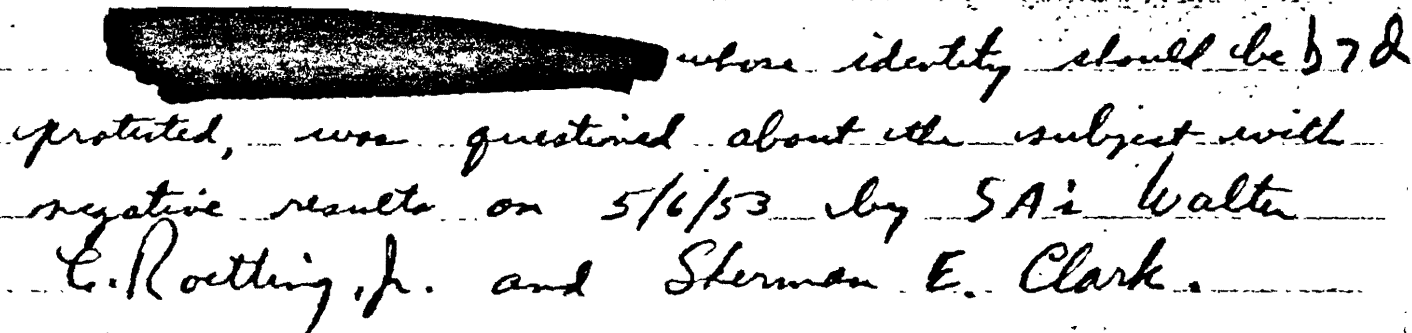 whose identity should be b7d
protected, was questioned about the subject with
negative results on 5/6/53 by SA's Walter
C. Roetting, Jr. and Sherman E. Clark.